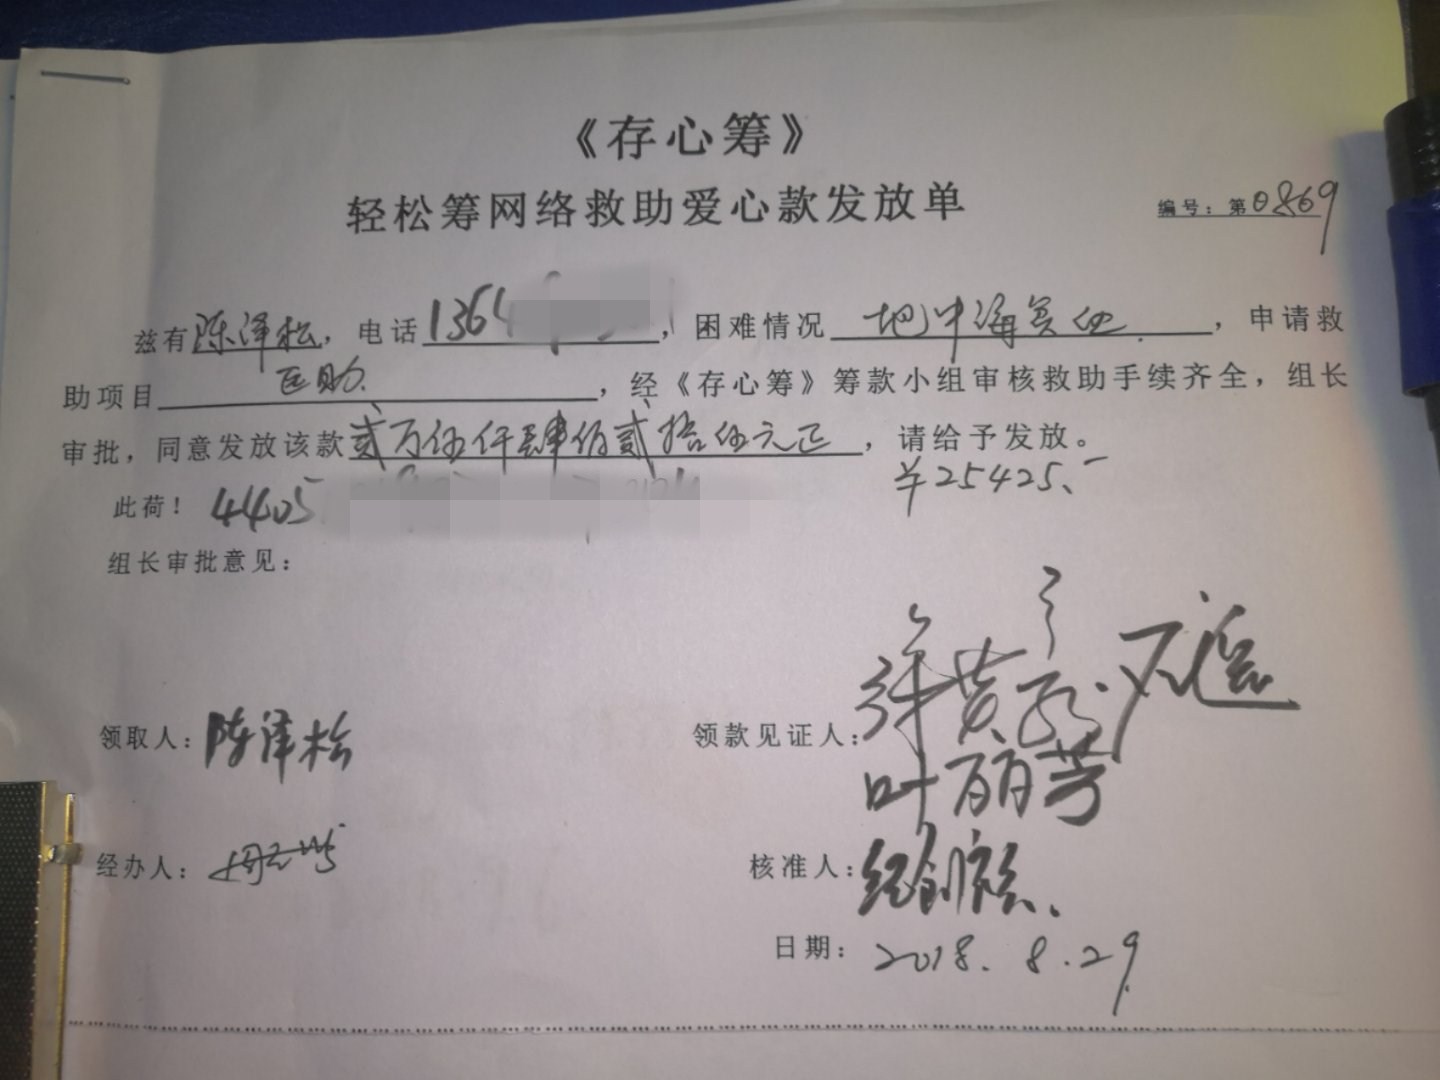 《存心筹》
轻松筹网络救助爱心款发放单
编号：第0869
兹有陈泽松，电话1364，困难情况地中海贫血，申请救
助项目医助，经《存心筹》筹款小组审核救助手续齐全，组长
审批，同意发放该款贰万伍仟肆佰贰拾伍元正，请给予发放。
￥25425.-
此荷！4405
组长审批意见：
领取人：陈泽松
领款见证人：
叶丽芳
经办人：
核准人：
日期：2018.8.29